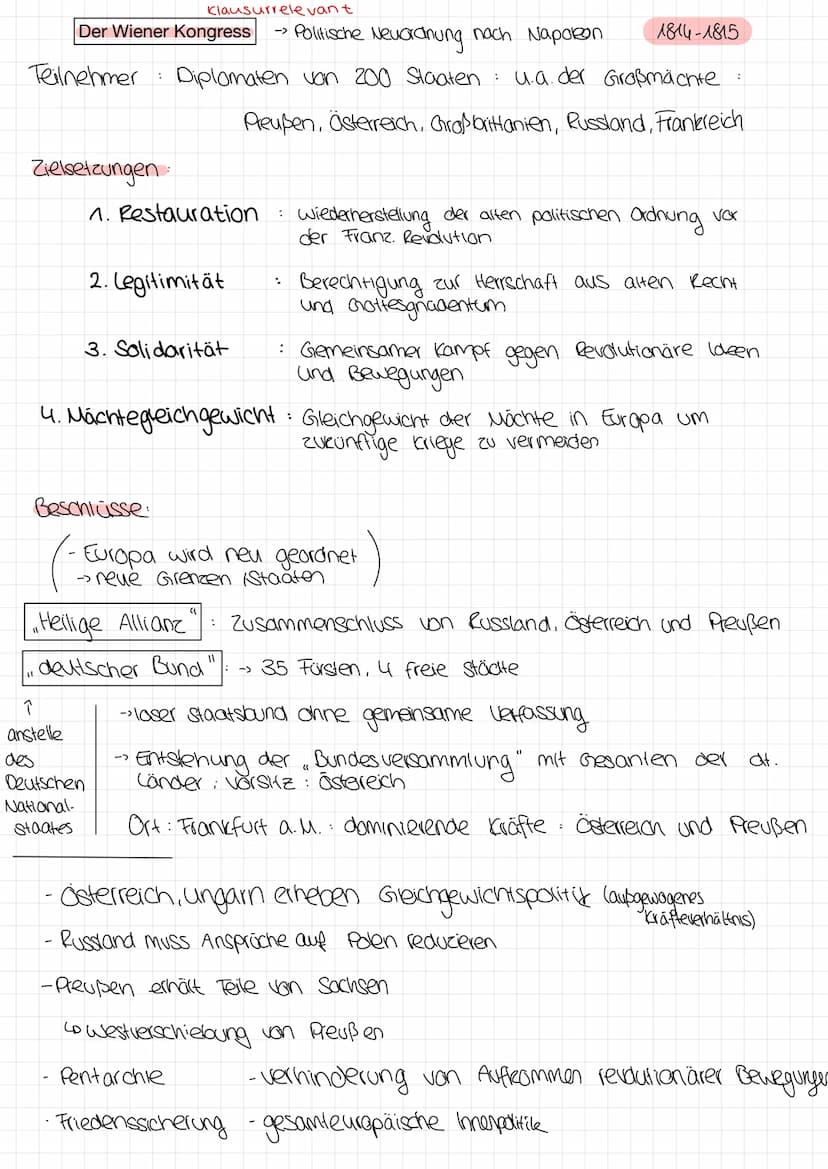 Klausurrelevant
Der Wiener Kongress → Politische Neuordnung nach Napoleon 1814-1815
Teilnehmer : Diplomaten von 200 Staaten : u.a. der Großmächte :
Preußen, Österreich, Großbrittanien, Russland, Frankreich
Zielsetzungen:
1. Restauration : Wiederherstellung der alten politischen Ordnung vor
der Franz. Revolution
2. Legitimität : Berechtigung zur Herrschaft aus alten Recht
und Gottesgnadentum
3. Solidarität : Gemeinsamer Kampf gegen Revolutionäre Ideen
und Bewegungen
4. Mächtegleichgewicht : Gleichgewicht der Mächte in Europa um
zukünftige Kriege zu vermeiden
Beschlüsse:
(- Europa wird neu geordnet
→ neue Grenzen / Staaten)
„Heilige Allianz" : Zusammenschluss von Russland, Österreich und Preußen
„deutscher Bund" : → 35 Fürsten, 4 freie Städte
↑
anstelle
des
Deutschen
National-
staates
→ loser Staatsbund ohne gemeinsame Verfassung
→ Entstehung der „Bundesversammlung" mit Gesanten der dt.
Länder ; Vorsitz : Östereich
Ort : Frankfurt a.M. : dominierende Kräfte : Österreich und Preußen
- Österreich, Ungarn erheben Gleichgewichtspolitik (außgewogenes
Kräfteverhältnis)
- Russland muss Ansprüche auf Polen reduzieren
- Preußen erhält Teile von Sachsen
↳ Westverschiebung von Preußen
- Pentarchie - Verhinderung von Aufkommen revolutionärer Bewegungen
- Friedenssicherung - gesamteuropäische Innenpolitik